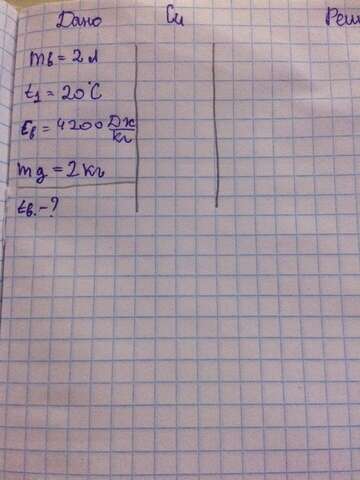 Дано Си Реш
mв = 2 л
t1 = 20°C
Cв = 4200 Дж/кг
mд = 2 кг
tв. - ?